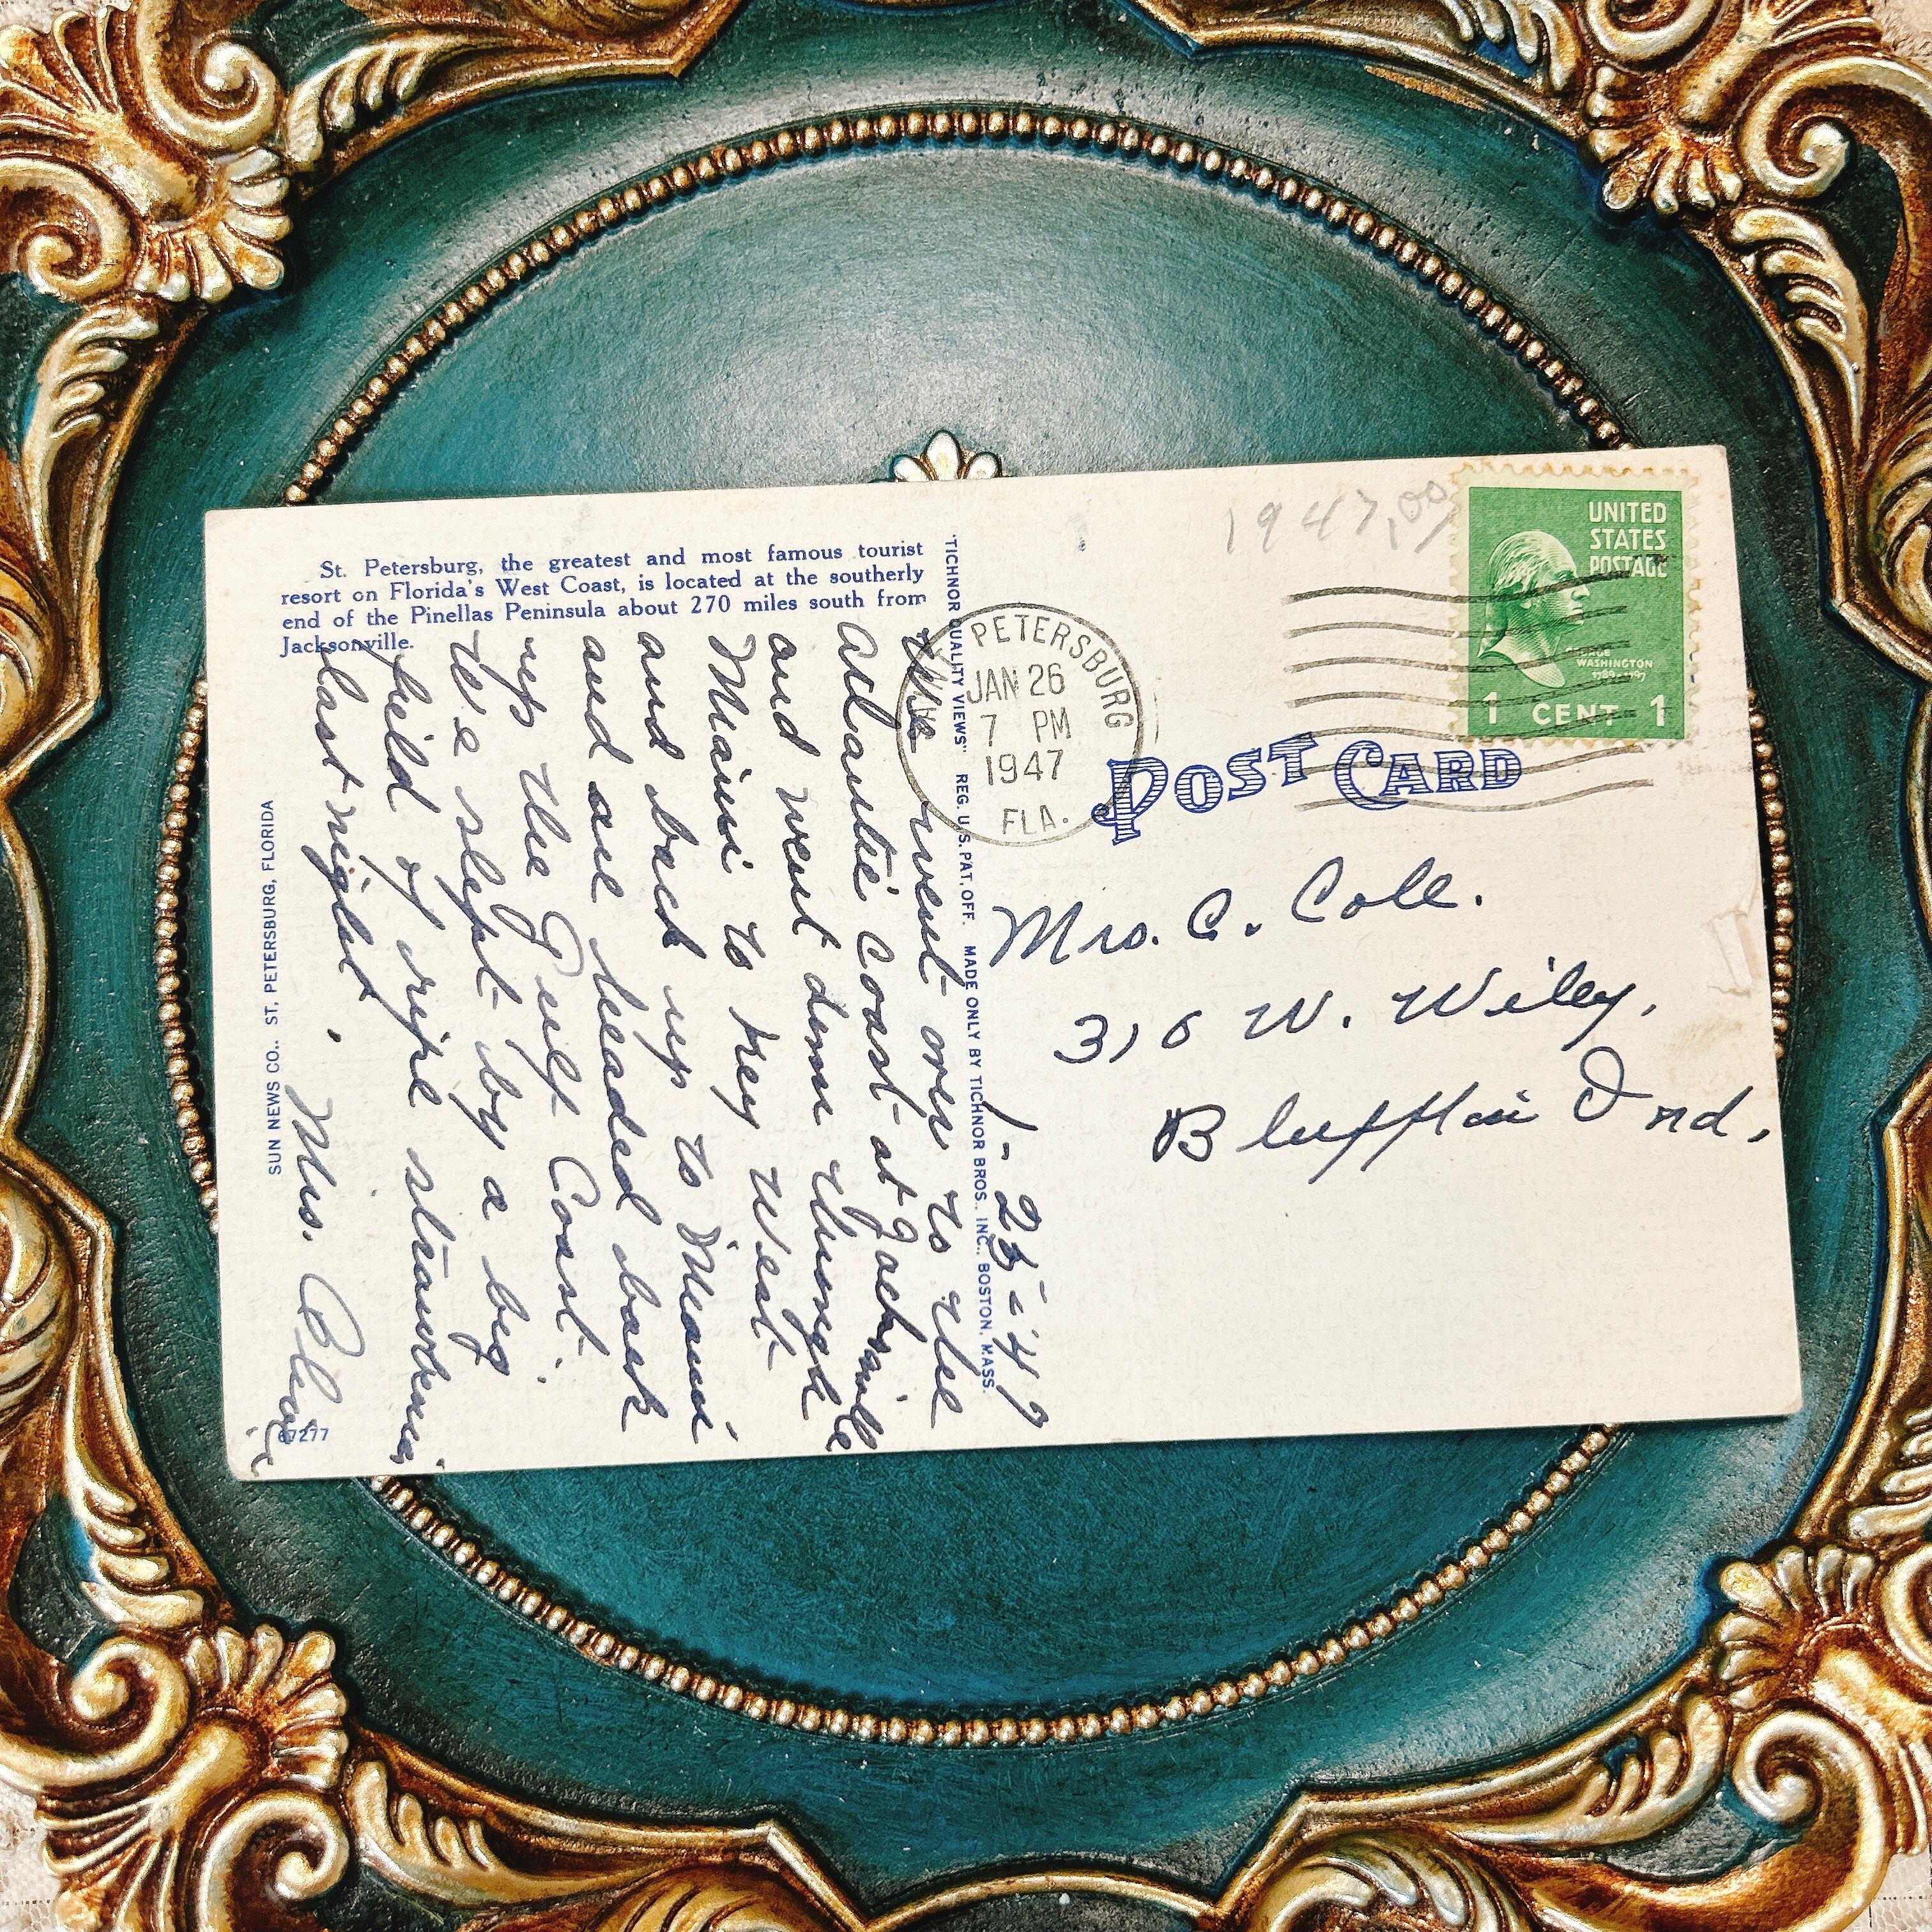 St. Petersburg, the greatest and most famous tourist
resort on Florida's West Coast, is located at the southerly
end of the Pinellas Peninsula about 270 miles south from
Jacksonville.
1-25-'47
We went over to the
Atlantic Coast at Jacksonville
and went down through
Miami to Key West
and back up to Miami
and are headed back
up the Gulf Coast.
We slept by a big
field of ripe strawberries
last night.
Mrs. Blair
SUN NEWS CO., ST. PETERSBURG, FLORIDA
67277
"TICHNOR QUALITY VIEWS" REG. U.S. PAT. OFF. MADE ONLY BY TICHNOR BROS., INC., BOSTON, MASS.
1947
PETERSBURG
JAN 26
7 PM
1947
FLA.
UNITED
STATES
POSTAGE
GEORGE
WASHINGTON
1789-1797
1 CENT 1
POST CARD
Mrs. C. Cole.
316 W. Wiley,
Bluffton Ind.